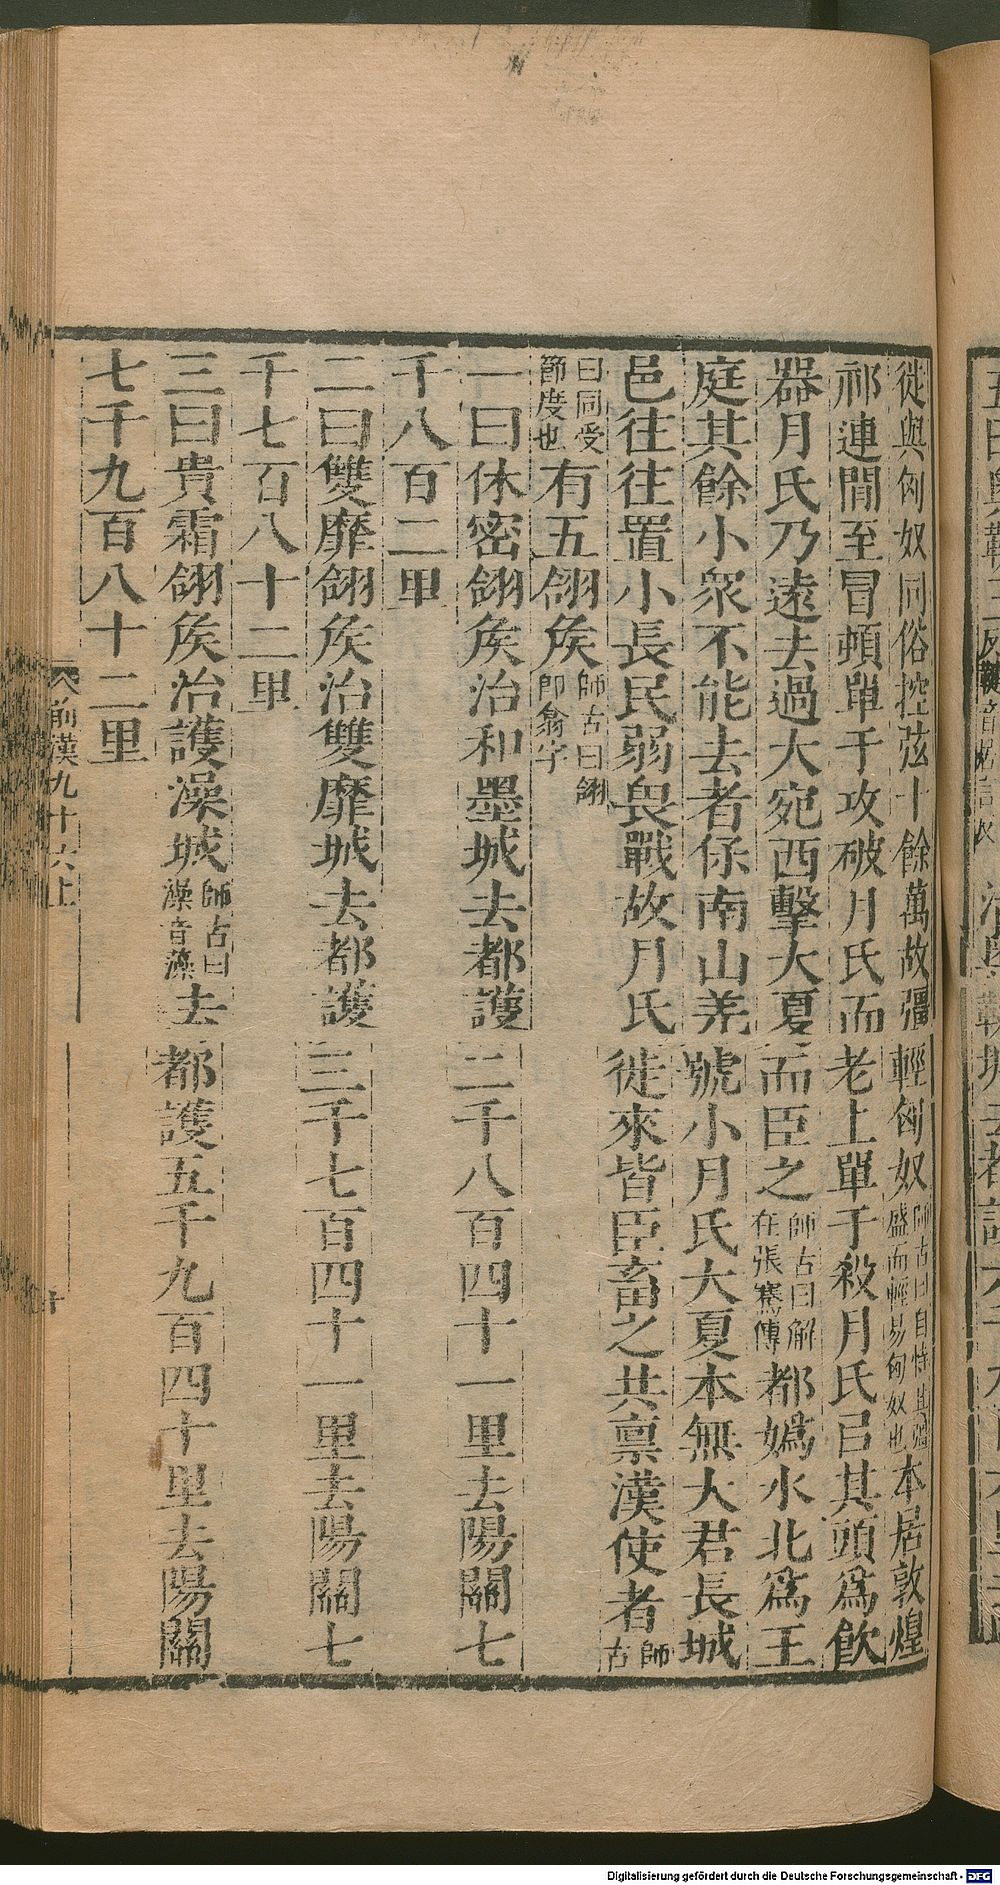 徙與匈奴同俗控弦十餘萬故彊輕匈奴師古曰自恃其彊盛而輕易匈奴也本居敦煌
祁連閒至冒頓單于攻破月氏而老上單于殺月氏㠯其頭爲飲
器月氏乃遠去過大宛西擊大夏而臣之師古曰解在張騫傳都嬀水北爲王
庭其餘小衆不能去者保南山羌號小月氏大夏本無大君長城
邑往往置小長民弱畏戰故月氏徙來皆臣畜之共稟漢使者師古
曰同受節度也有五翖侯師古曰翖即翕字
一曰休密翖侯治和墨城去都護二千八百四十一里去陽關七
千八百二里
二曰雙靡翖侯治雙靡城去都護三千七百四十一里去陽關七
千七百八十二里
三曰貴霜翖侯治護澡城師古曰澡音藻去都護五千九百四十里去陽關
七千九百八十二里
前漢九十六上
Digitalisierung gefördert durch die Deutsche Forschungsgemeinschaft - DFG